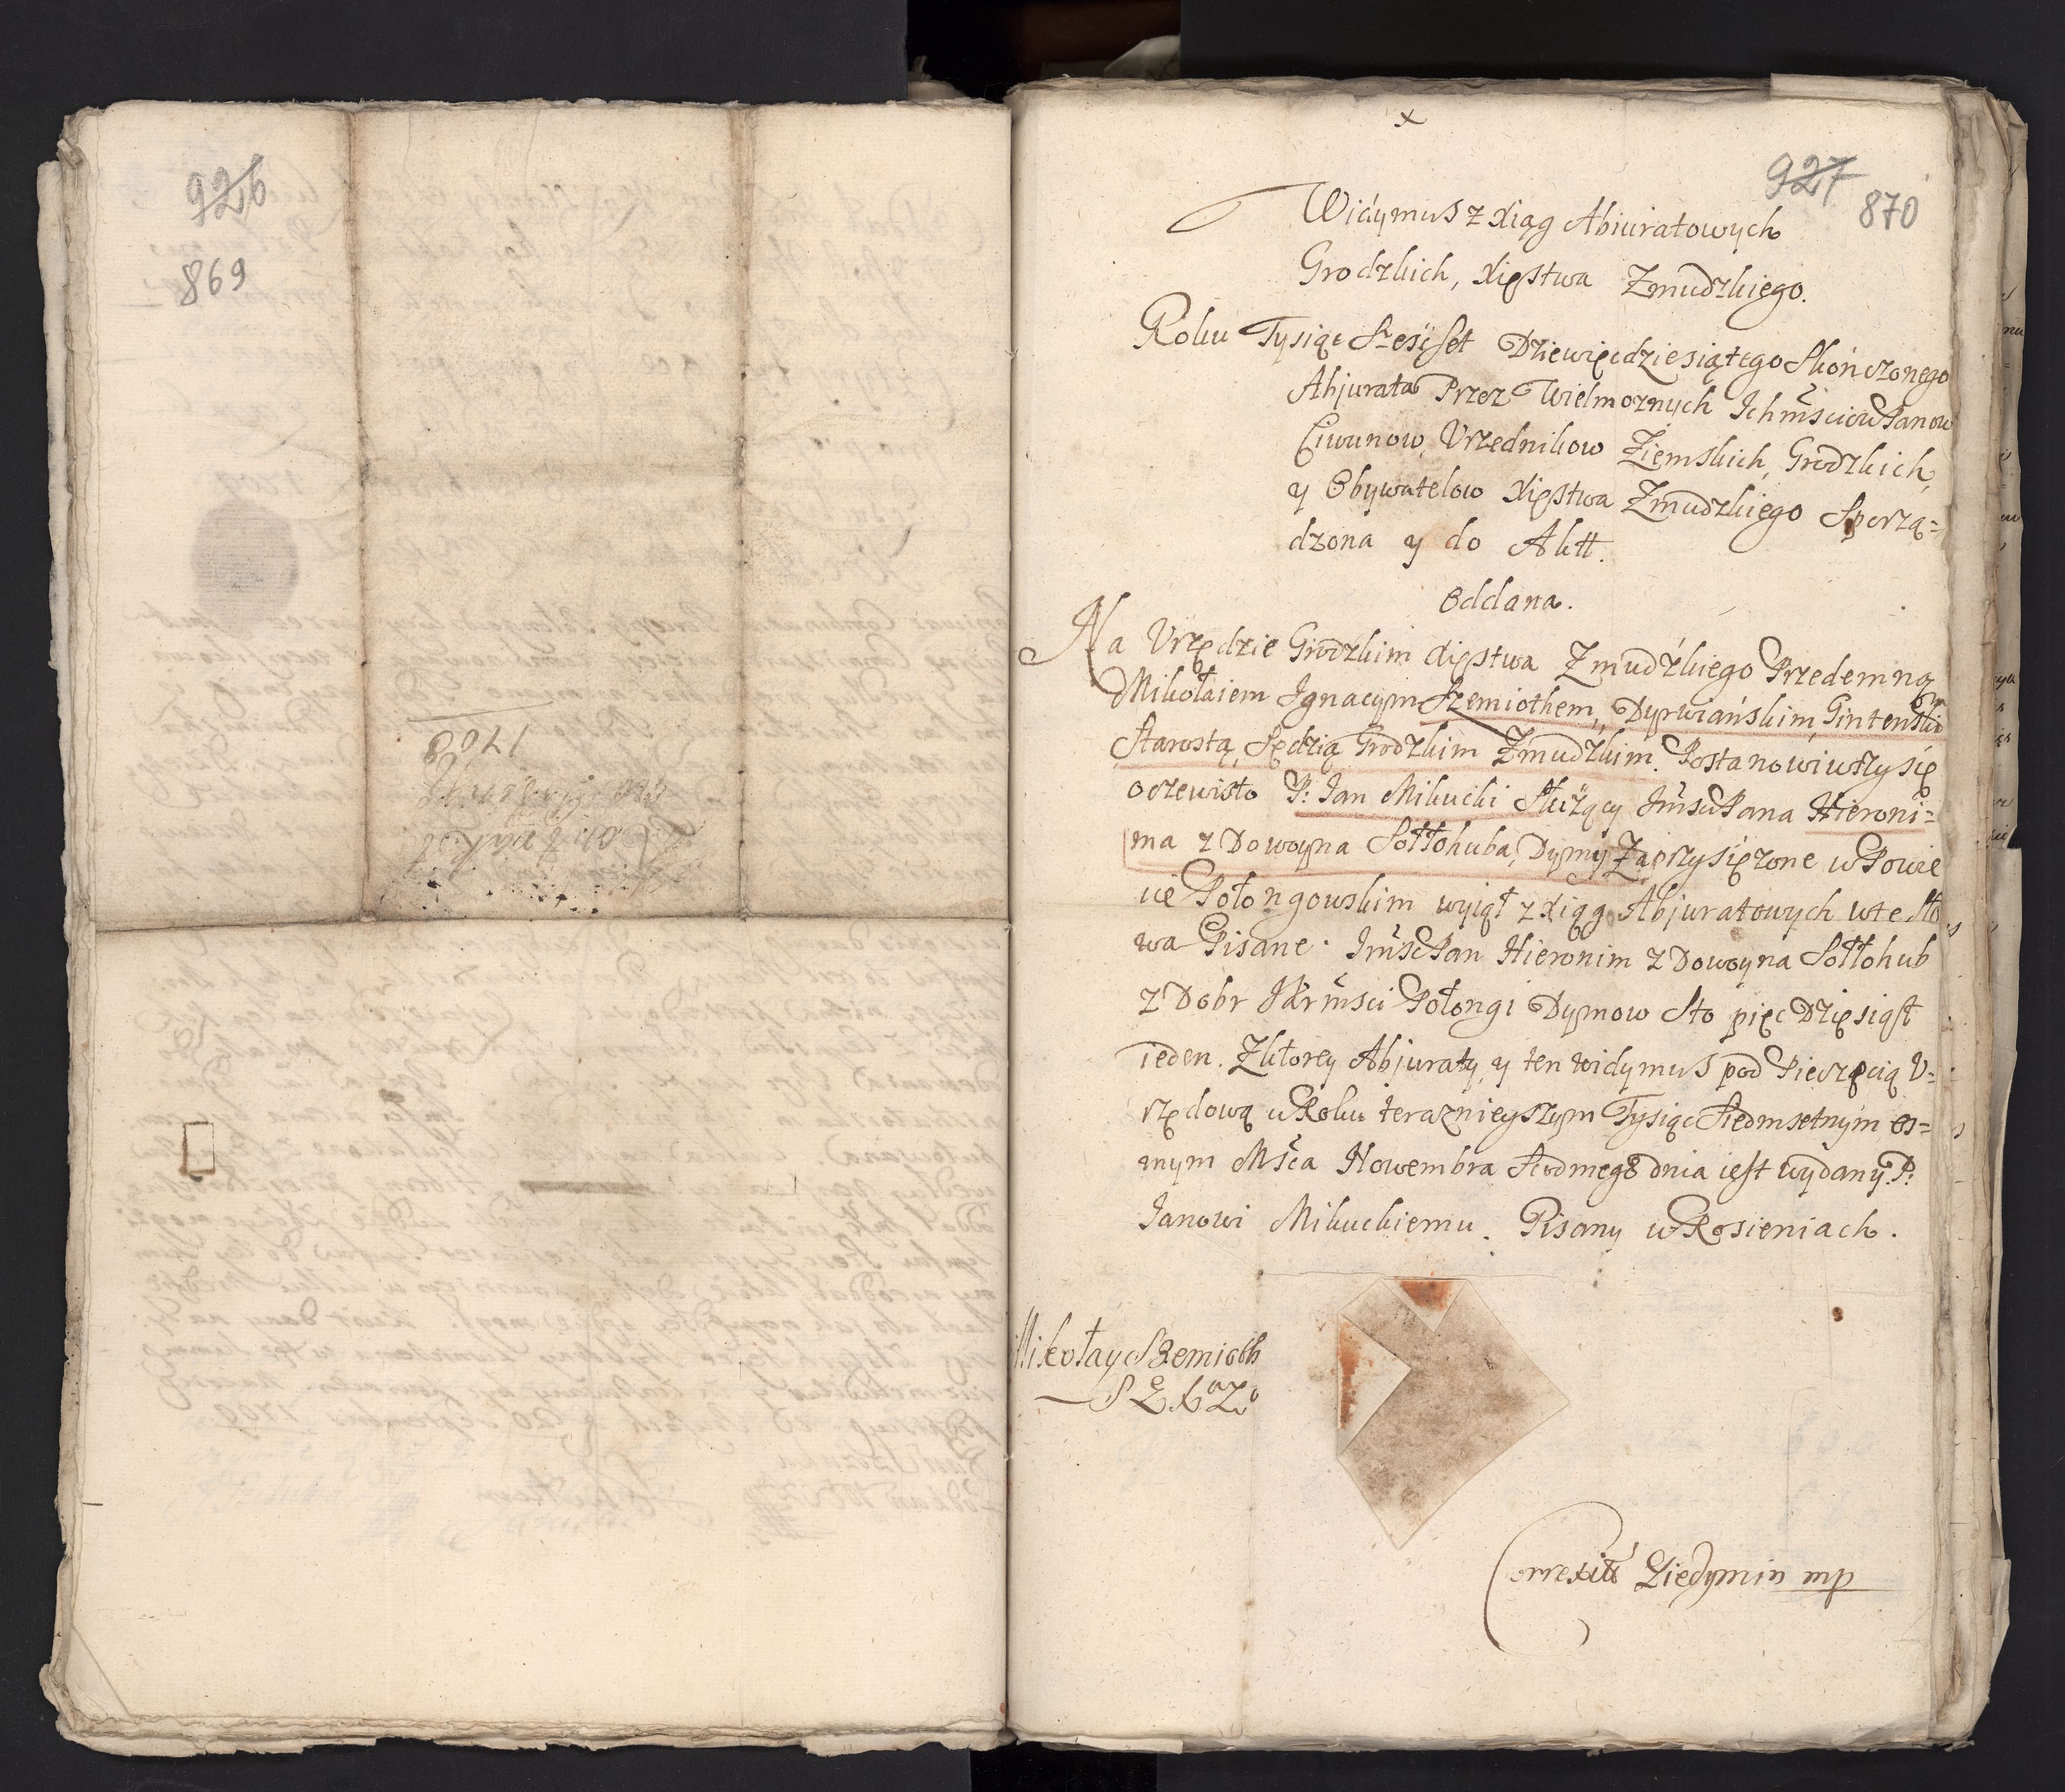 926
869
1708
x
927
870
Widymus z Xiąg Abiuratowych
Grodzkich, Xięstwa Zmudzkiego.
Roku Tysiąc Szesćset Dziewięcdziesiątego Skonczonego
Abjurata Przez Wielmoznych Ichmsciow Panow
Ciwunow, Vrzednikow Ziemskich, Grodzkich,
y Obywatelow Xięstwa Zmudzkiego Sporzą=
dzona y do Aktt.
Oddana.
Na Vrzędzie Grodzkim Xięstwa Zmudzkiego Przedemną
Mikołaiem Ignacym Szemiothem, Dyrwiańskim, Gintenskim
Starostą, Sędzią Grodzkim Zmudzkim. Postanowiwszy się
oczewisto P: Jan Mikucki Służący Jmsci Pana Hieroni=
ma z Dowoyna Sołłohuba, Dymy Zaprzysięzone w Powie
cie Połongowskim wyiął z Xiąg Abjuratowych wte Sło
wa Pisane. Jmsc Pan Hieronim z Dowoyna Sołłohub
z Dobr JKrmsci Połongi Dymow Sto pięc Dzięsiąt
ieden. Zktorey Abjuraty, y ten widymus pod Pieczęcią V=
rzędową w Roku teraznieyszym Tysiąc Siedmsetnym os=
mym Msca Nowembra Siodmego dnia iest wydany. P:
Janowi Mikuckiemu. Pisany w Rosieniach.
Mikołay Szemioth
S Z X Z
Correxit Giedymin mp